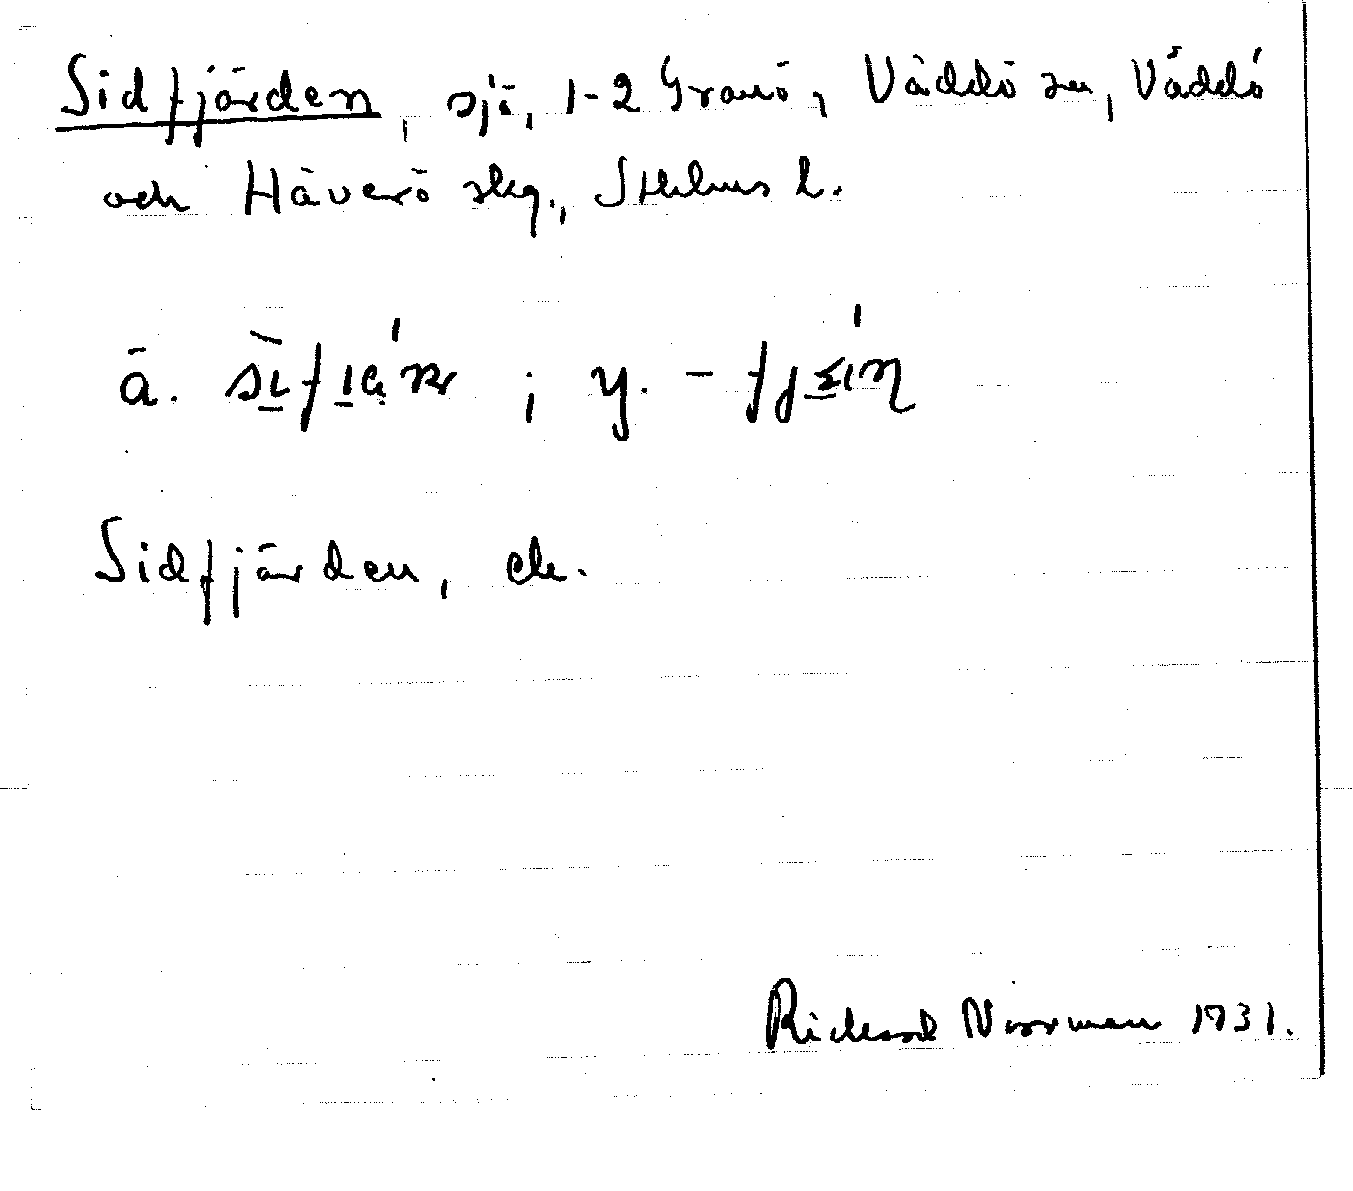 Sidfjärden, sjö, 1-2 Granö, Väddö sn, Väddö
och Häverö skg., Sthlms l.
ä. ; y. -
Sidfjärden, ek.
Richard Norrman 1931.